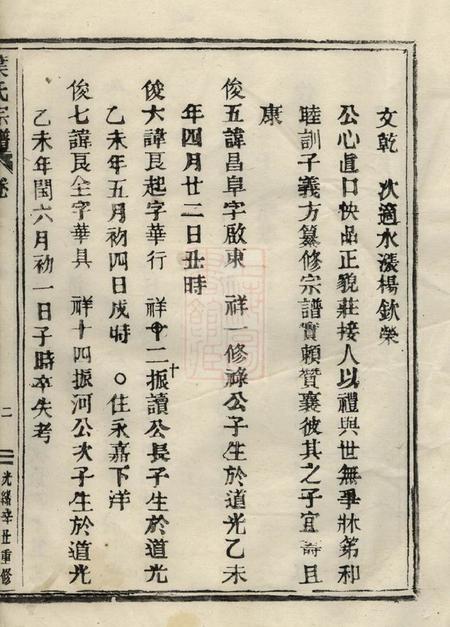 文乾　次適水漲楊欽榮
公心直口快品正貌莊接人以禮與世無爭牀第和
睦訓子義方纂修宗譜實賴贊襄彼其之子宜壽且
康
俊五諱昌阜字啟東　祥一修祿公子生於道光乙未
年四月廿二日丑時
俊六諱良起字華行　祥十二振讀公長子生於道光
乙未年五月初四日戌時　○住永嘉下洋
俊七諱良全字華具　祥十四振河公次子生於道光
乙未年閏六月初一日子時卒失考
葉氏宗譜　卷
二
光緒辛丑重修